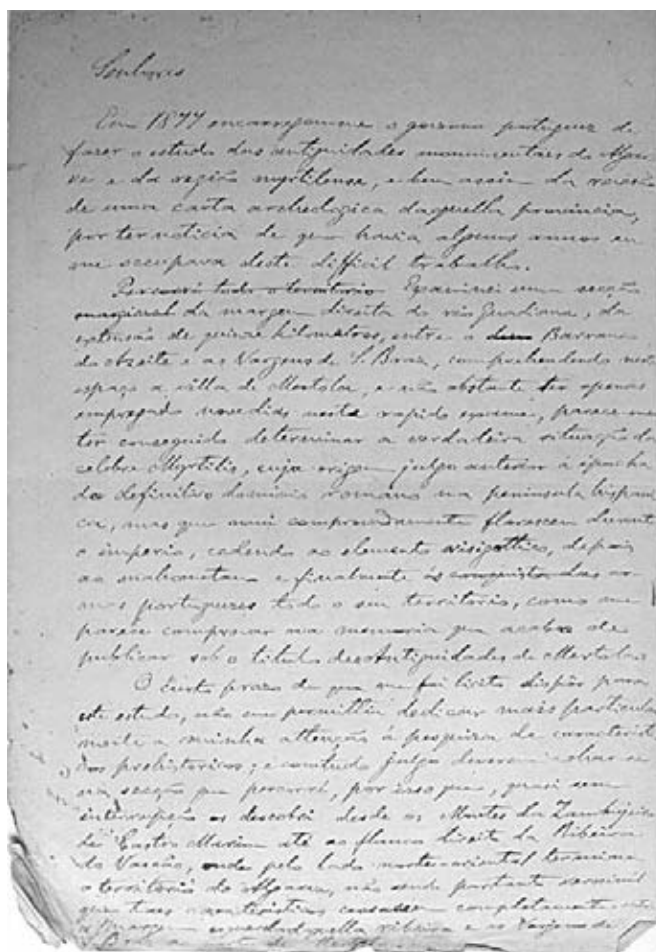 Senhores
Em 1877 encarregou-me o governo portuguez de
fazer o estudo das antiguidades monumentaes do Algar-
ve e da região myrtilense, e bem assim da
de uma carta archeologica daquella provincia,
por ter noticia de que havia alguns annos eu
me occupava deste difficil trabalho.
Percorri todo o territorio Examinei uma secção
marginal da margem direita do rio Guadiana, da
extensão de quinze kilometros, entre o Barranco
do Azeite e as Vargens de S. Braz, comprehendendo neste
espaço a villa de Mertola, e não obstante ter apenas
empregado nove dias neste rapido exame, parece-me
ter conseguido determinar a verdadeira situação da
celebre Myrtilis, cuja origem julgo anterior á épocha
do definitivo dominio romano na peninsula hispani-
ca, mas que mui floresceu durante
o imperio, cedendo ao elemento visigothico, depois
ao mahometano e finalmente ás conquistas das ar-
mas portuguezas todo o seu territorio, como me
parece comprovar na memoria que acabo de
publicar sob o titulo de Antiguidades de Mertola.
O curto prazo de que me foi licito dispôr para
este estudo, não me permittiu dedicar mais particular-
mente a minha attenção á pesquiza de caracteristi-
cos prehistoricos; e comtudo julgo deverem achar-se
na secção que percorri, por isso que, quasi sem
interrupção os descobri desde os Montes da Zambujeira
de Castro Marim até ao flanco direito da Ribeira
do Vascão, onde pelo lado norte-oriental termina
o territorio do Algarve, não sendo portanto verosimil
que taes caracteristicos cessassem completamente entre
a margem esquerda daquella ribeira e as Vargens de
S. Braz